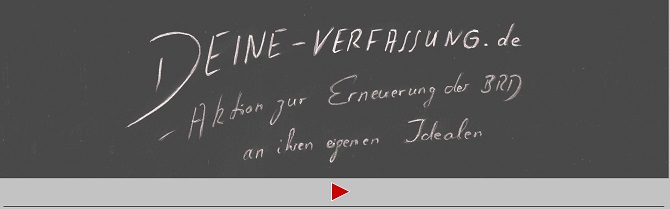 DEINE-VERFASSUNG.de
- Aktion zur Erneuerung der BRD
an ihren eigenen Idealen